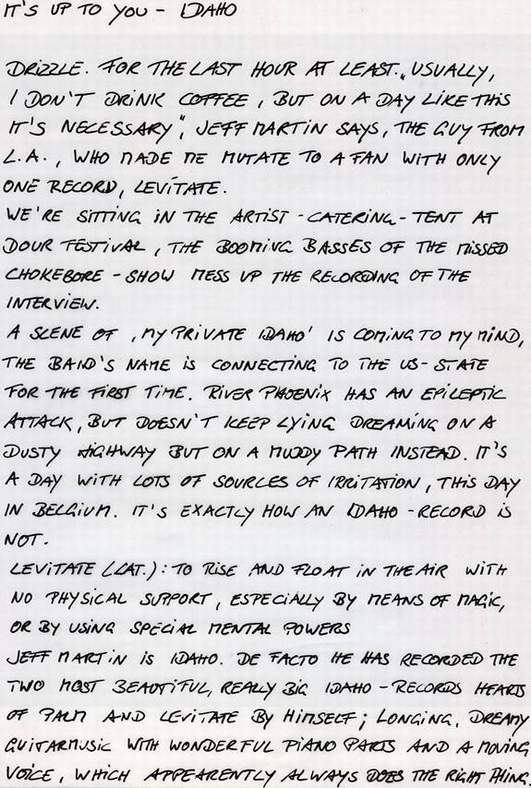 IT'S UP TO YOU - IDAHO
DRIZZLE. FOR THE LAST HOUR AT LEAST. „USUALLY,
I DON'T DRINK COFFEE, BUT ON A DAY LIKE THIS
IT'S NECESSARY", JEFF MARTIN SAYS, THE GUY FROM
L.A., WHO MADE ME MUTATE TO A FAN WITH ONLY
ONE RECORD, LEVITATE.
WE'RE SITTING IN THE ARTIST-CATERING-TENT AT
DOUR FESTIVAL, THE BOOMING BASSES OF THE MISSED
CHOKEBORE-SHOW MESS UP THE RECORDING OF THE
INTERVIEW.
A SCENE OF ‚MY PRIVATE IDAHO' IS COMING TO MY MIND,
THE BAND'S NAME IS CONNECTING TO THE US-STATE
FOR THE FIRST TIME. RIVER PHOENIX HAS AN EPILEPTIC
ATTACK, BUT DOESN'T KEEP LYING DREAMING ON A
DUSTY HIGHWAY BUT ON A MUDDY PATH INSTEAD. IT'S
A DAY WITH LOTS OF SOURCES OF IRRITATION, THIS DAY
IN BELGIUM. IT'S EXACTLY HOW AN IDAHO-RECORD IS
NOT.
LEVITATE (LAT.): TO RISE AND FLOAT IN THE AIR WITH
NO PHYSICAL SUPPORT, ESPECIALLY BY MEANS OF MAGIC,
OR BY USING SPECIAL MENTAL POWERS
JEFF MARTIN IS IDAHO. DE FACTO HE HAS RECORDED THE
TWO MOST BEAUTIFUL, REALLY BIG IDAHO-RECORDS HEARTS
OF PALM AND LEVITATE BY HIMSELF; LONGING, DREAMY
GUITARMUSIC WITH WONDERFUL PIANO PARTS AND A MOVING
VOICE, WHICH APPEARENTLY ALWAYS DOES THE RIGHT THING.